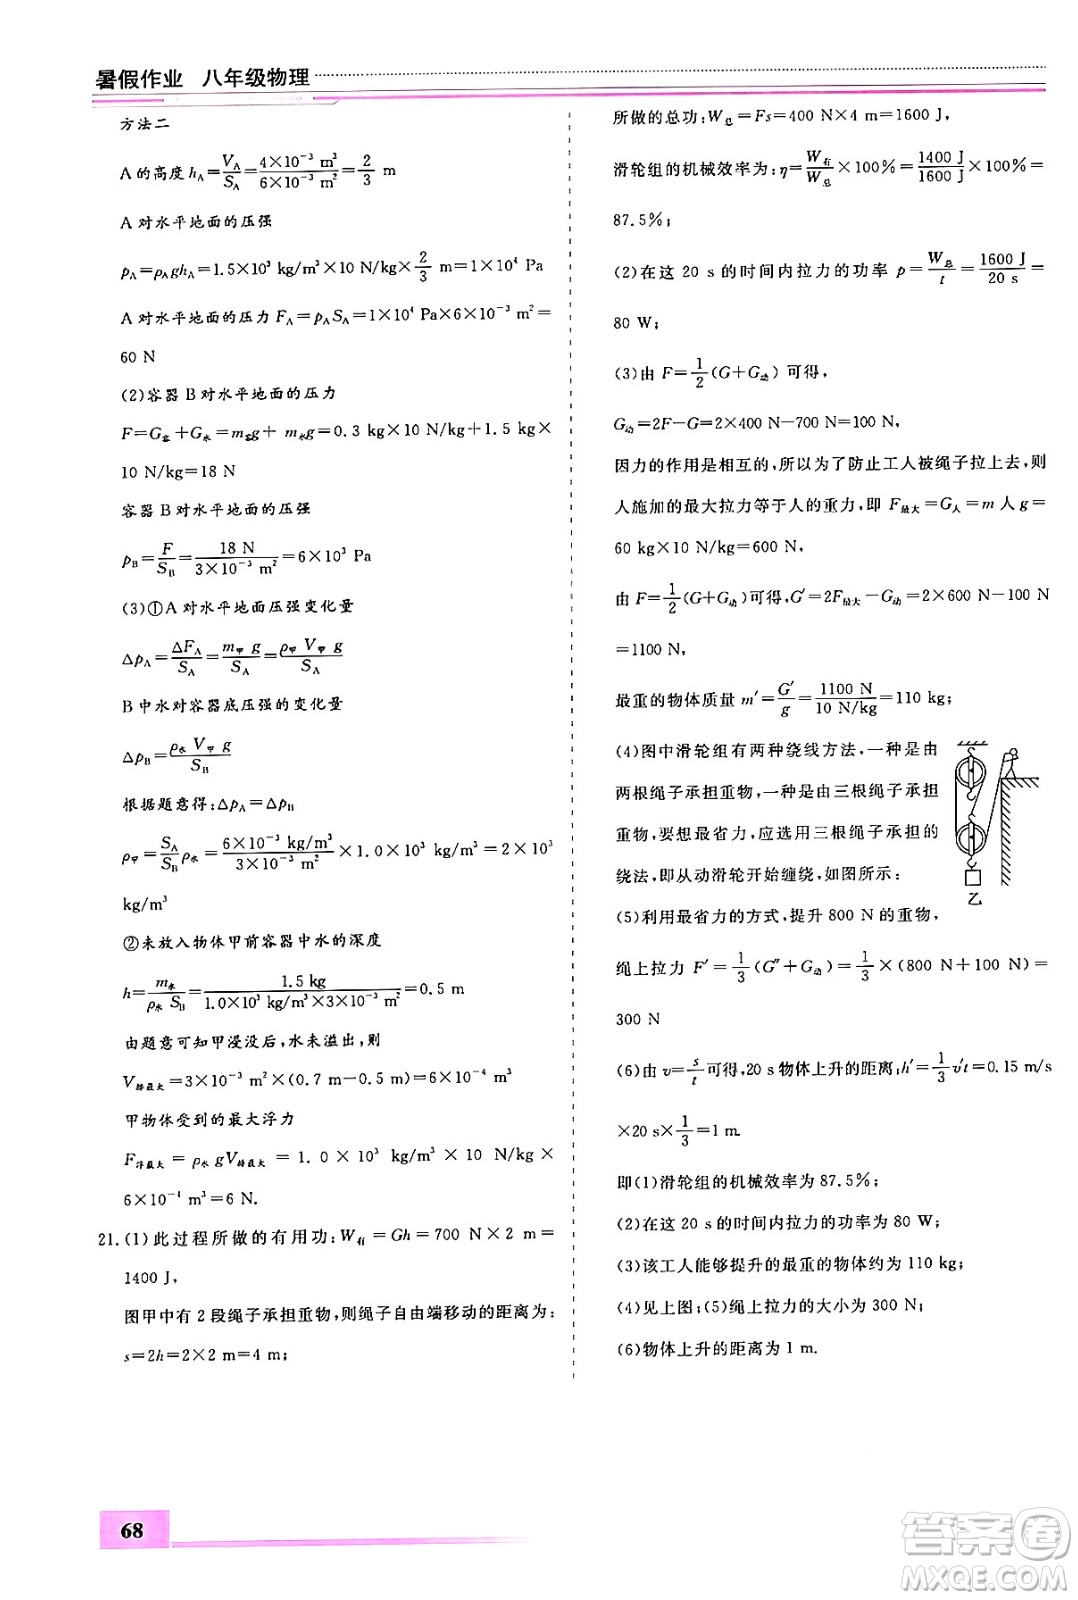 暑假作业 八年级物理
方法二
A 的高度 h_A=V_A/S_A=4×10⁻³ m³/6×10⁻³ m²=2/3 m
A 对水平地面的压强
p_A=ρ_A gh_A=1.5×10³ kg/m³×10 N/kg×2/3 m=1×10⁴ Pa
A 对水平地面的压力 F_A=p_A S_A=1×10⁴ Pa×6×10⁻³ m²=
60 N
(2)容器 B 对水平地面的压力
F=G容+G水=m容g+ m水g=0.3 kg×10 N/kg+1.5 kg×
10 N/kg=18 N
容器 B 对水平地面的压强
p_B=F/S_B=18 N/3×10⁻³ m²=6×10³ Pa
(3)①A 对水平地面压强变化量
Δp_A=ΔF_A/S_A=m甲 g/S_A=ρ甲 V甲 g/S_A
B 中水对容器底压强的变化量
Δp_B=ρ水 V甲 g/S_B
根据题意得:Δp_A=Δp_B
ρ甲=S_A/S_B ρ水=6×10⁻³ kg/m³/3×10⁻³ m²×1.0×10³ kg/m³=2×10³
kg/m³
②未放入物体甲前容器中水的深度
h=m水/ρ水 S_B=1.5 kg/1.0×10³ kg/m³×3×10⁻³ m²=0.5 m
由题意可知甲浸没后,水未溢出,则
V排最大=3×10⁻³ m²×(0.7 m-0.5 m)=6×10⁻⁴ m³
甲物体受到的最大浮力
F浮最大 = ρ水 gV排最大 = 1.0 × 10³ kg/m³ × 10 N/kg ×
6×10⁻⁴ m³=6 N.
21.(1)此过程所做的有用功:W有=Gh=700 N×2 m=
1400 J,
图甲中有 2 段绳子承担重物,则绳子自由端移动的距离为:
s=2h=2×2 m=4 m;
所做的总功:W总=Fs=400 N×4 m=1600 J,
滑轮组的机械效率为:η=W有/W总×100%=1400 J/1600 J×100%=
87.5%;
(2)在这 20 s 的时间内拉力的功率 p=W总/t=1600 J/20 s=
80 W;
(3)由 F=1/2(G+G动)可得,
G动=2F-G=2×400 N-700 N=100 N,
因力的作用是相互的,所以为了防止工人被绳子拉上去,则
人施加的最大拉力等于人的重力,即 F最大=G人=m 人 g=
60 kg×10 N/kg=600 N,
由 F=1/2(G+G动)可得,G′=2F最大-G动=2×600 N-100 N
=1100 N,
最重的物体质量 m′=G′/g=1100 N/10 N/kg=110 kg;
(4)图中滑轮组有两种绕线方法,一种是由
两根绳子承担重物,一种是由三根绳子承担
重物,要想最省力,应选用三根绳子承担的
绕法,即从动滑轮开始缠绕,如图所示:
乙
(5)利用最省力的方式,提升 800 N 的重物,
绳上拉力 F′=1/3(G″+G动)=1/3×(800 N+100 N)=
300 N
(6)由 v=s/t可得,20 s物体上升的距离:h′=1/3v′t=0.15 m/s
×20 s×1/3=1 m.
即(1)滑轮组的机械效率为 87.5%;
(2)在这 20 s 的时间内拉力的功率为 80 W;
(3)该工人能够提升的最重的物体约为 110 kg;
(4)见上图;(5)绳上拉力的大小为 300 N;
(6)物体上升的距离为 1 m.
68
答案圈
MXQE.COM